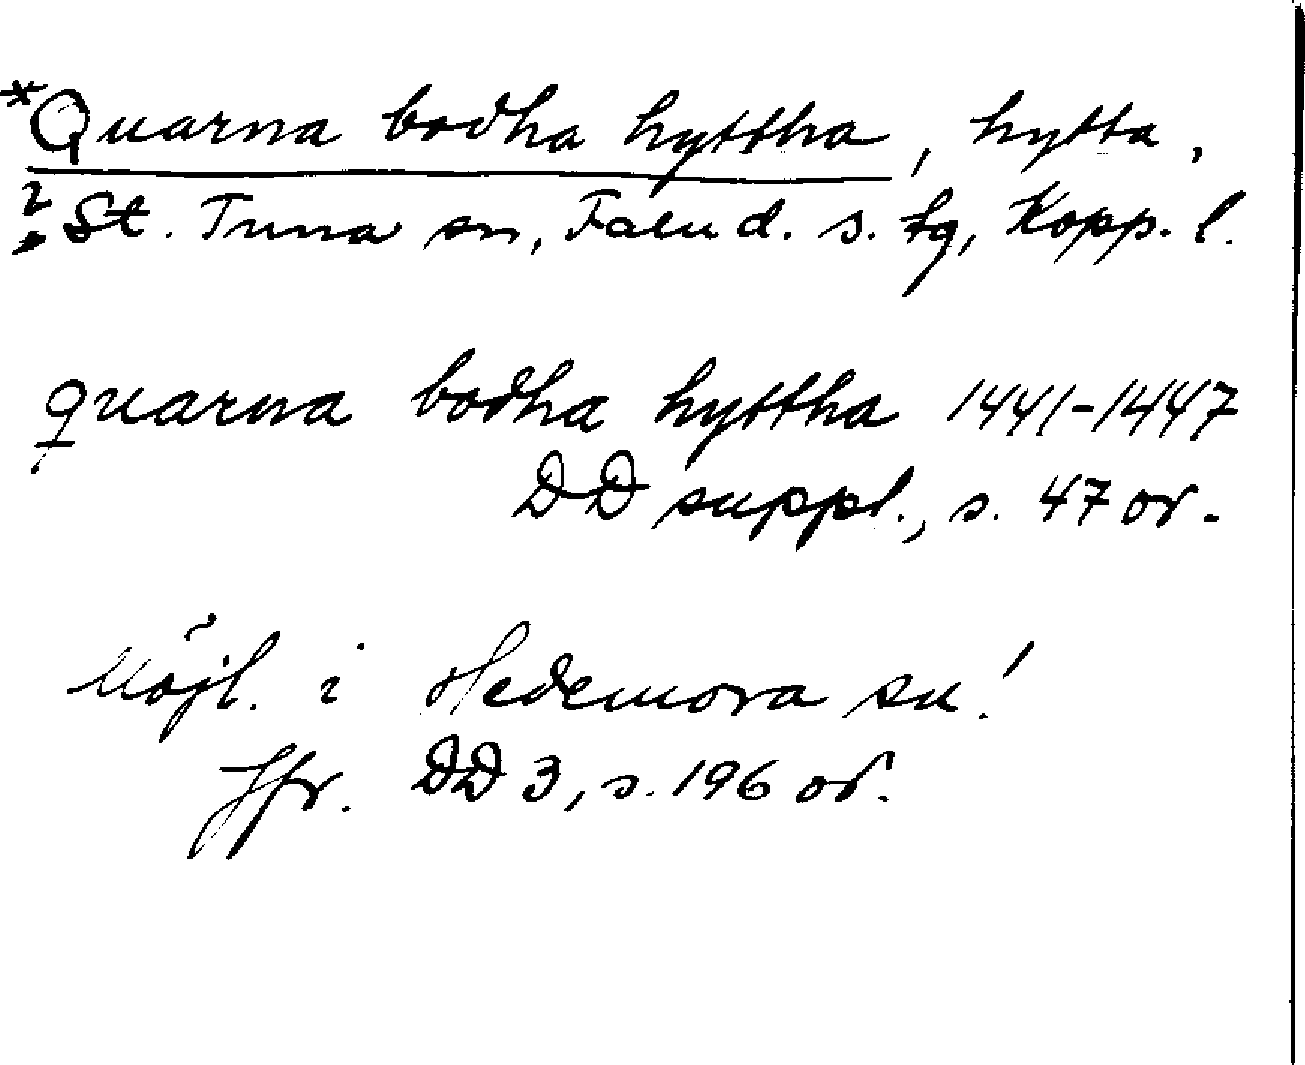 *Quarna bodha hyttha, hytta,
? St. Tuna sn, Falu d. s. tg, Kopp. l.
quarna bodha hyttha 1441-1447
DD suppl., s. 47 or.
Möjl. i Hedemora sn!
Jfr. DD 3, s. 196 or.